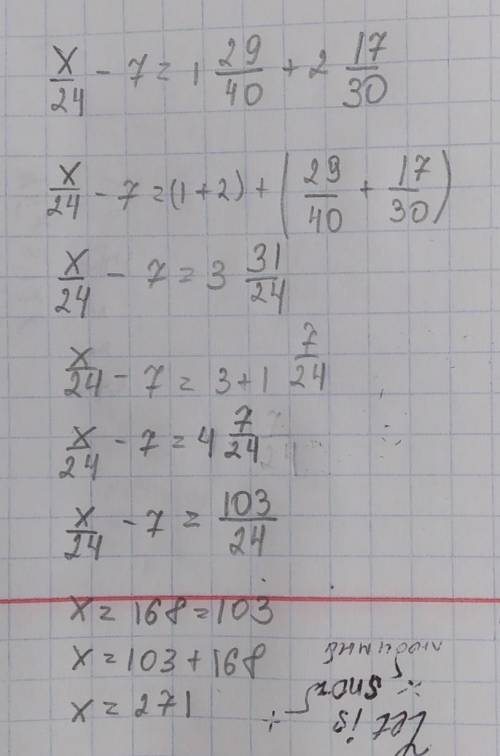 x/24 - 7 = 1 29/40 + 2 17/30
x/24 - 7 = (1 + 2) + (29/40 + 17/30)
x/24 - 7 = 3 31/24
x/24 - 7 = 3 + 1 7/24
x/24 - 7 = 4 7/24
x/24 - 7 = 103/24
x = 168 = 103
x = 103 + 168
x = 271
Let is
snoz